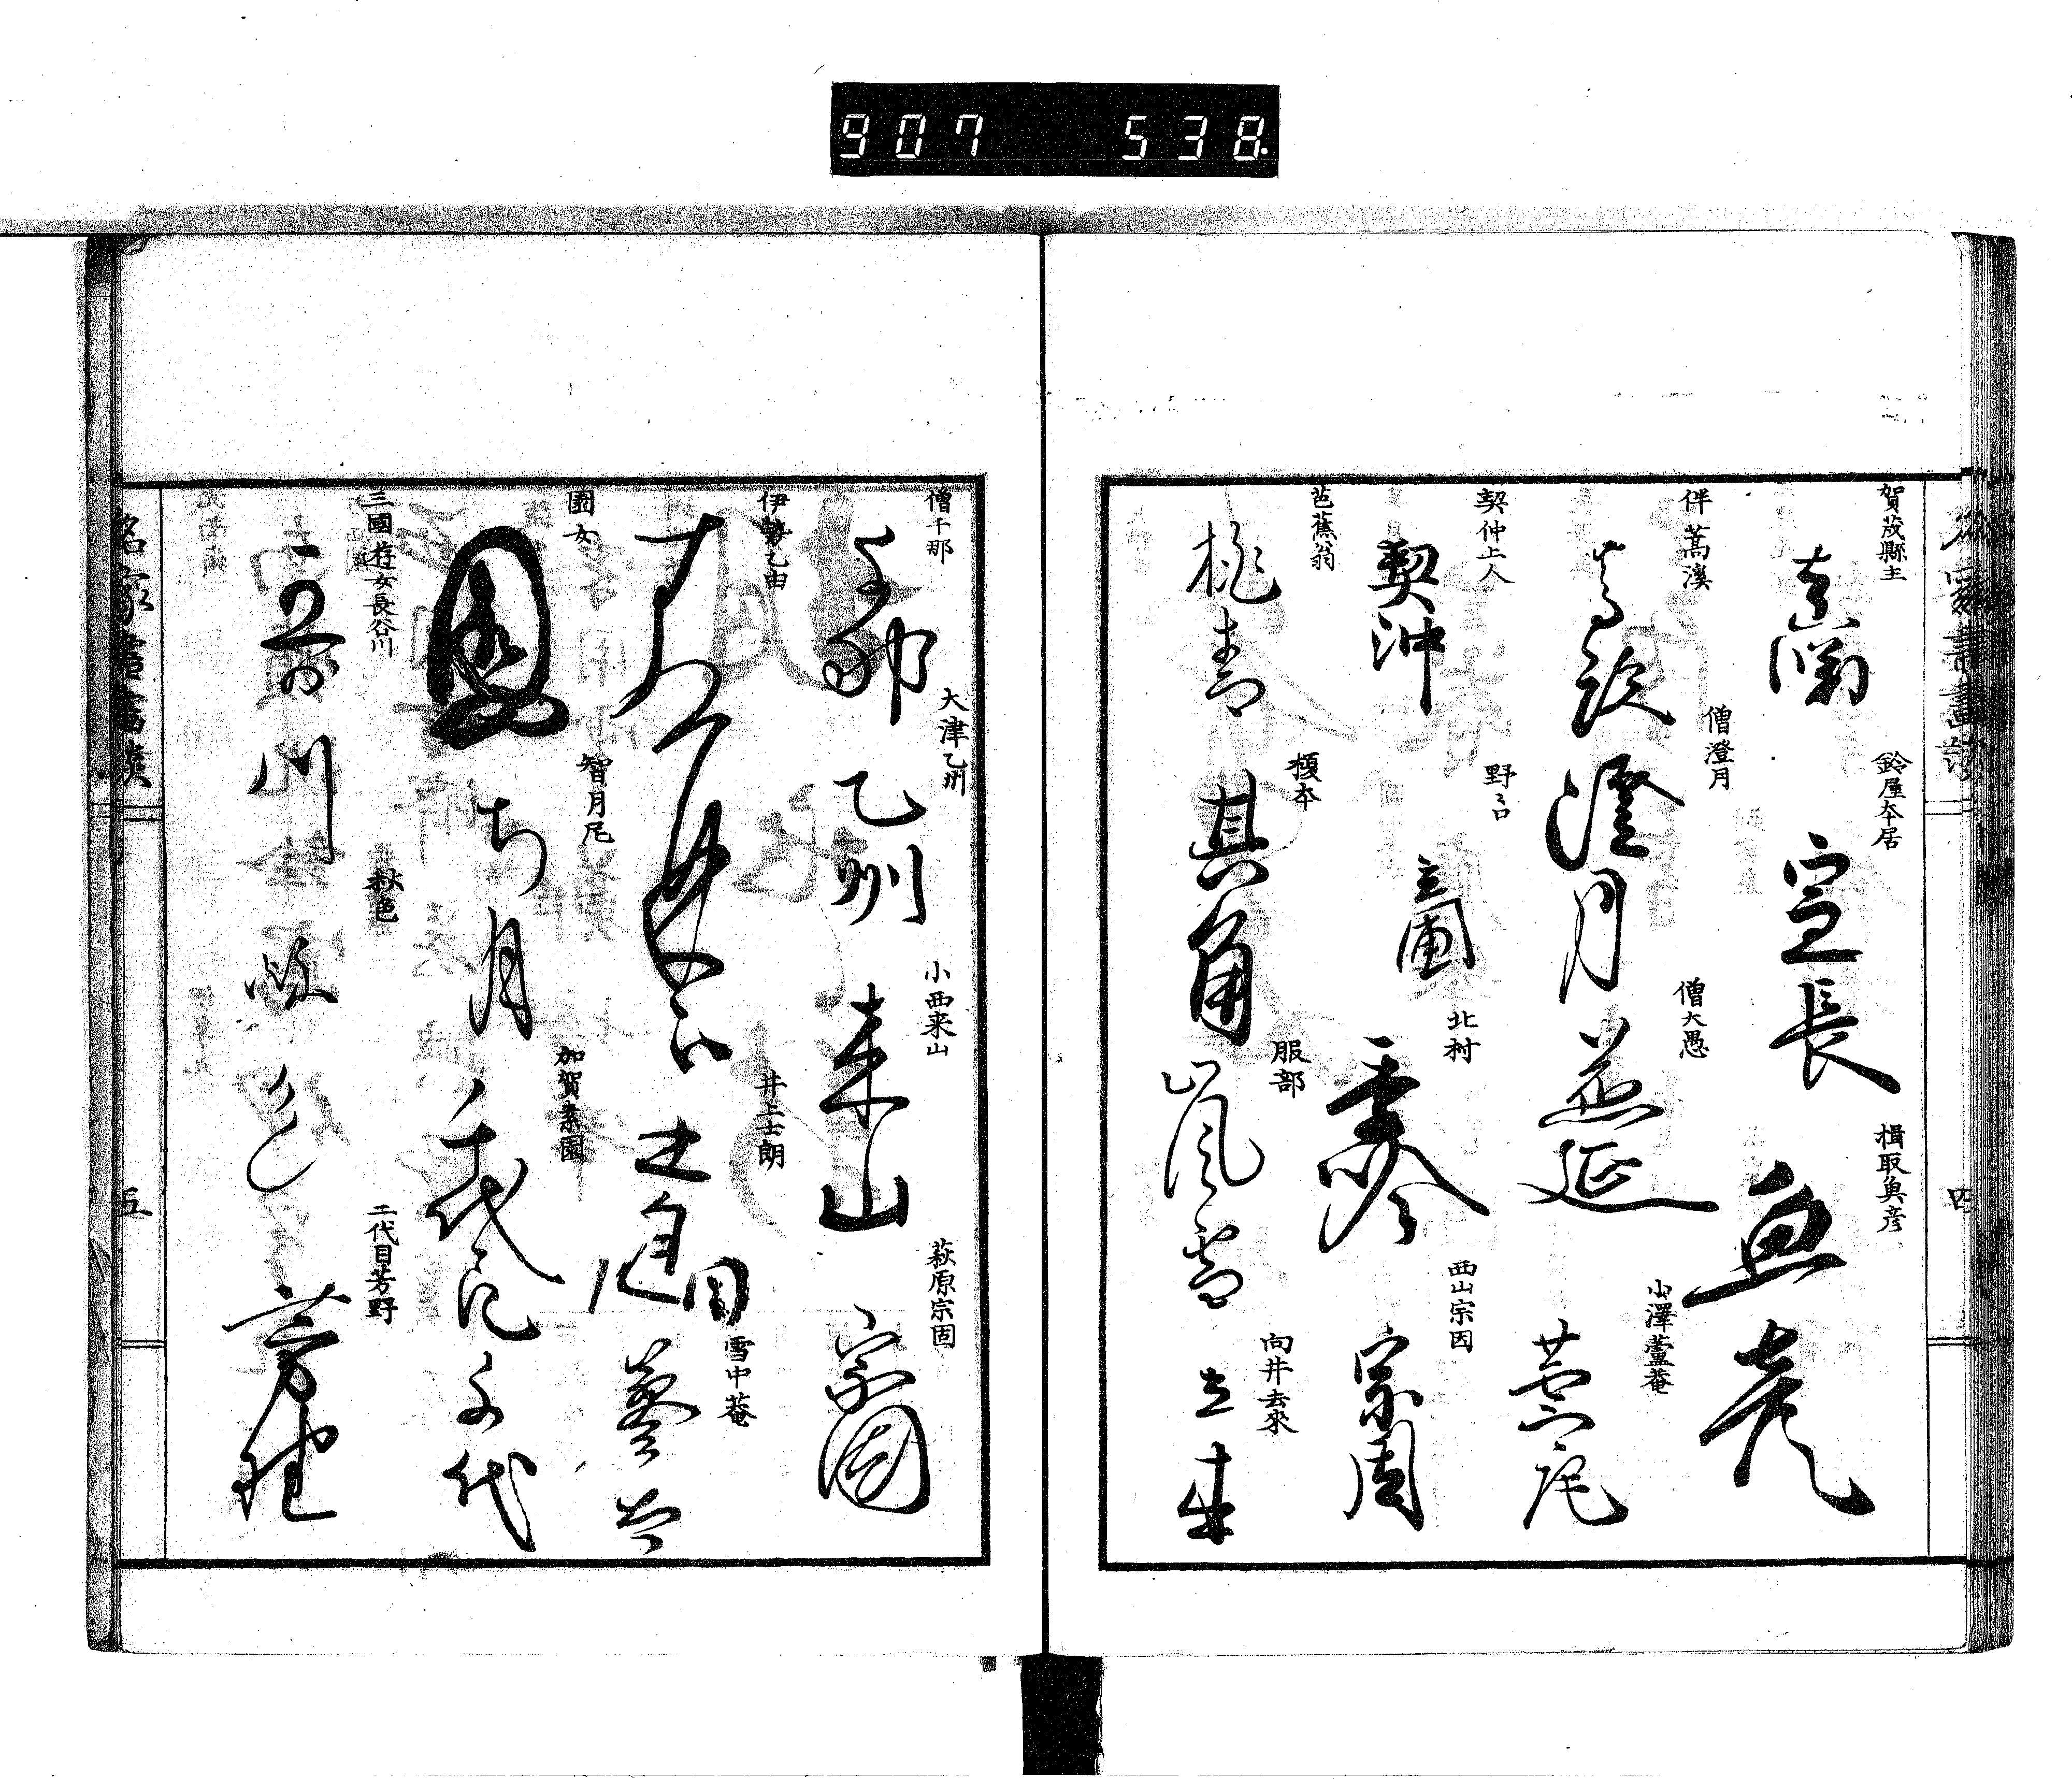 907 538.
賀茂縣主
真淵
鈴屋本居
宣長
楫取魚彦
魚彦
伴蒿溪
蒿蹊
僧澄月
澄月
僧大愚
慈延
小澤蘆菴
蘆庵
契仲上人
契沖
野々口
立圃
北村
季吟
西山宗因
宗因
芭蕉翁
桃青
榎本
其角
服部
嵐雪
向井去來
去来
四
僧千那
千那
大津乙州
乙州
小西来山
来山
萩原宗固
宗固
伊勢乙由
井上士朗
士朗
雪中菴
蓼太
園女
園女
智月尼
ち月
加賀素園
千代尼
千代
三國遊女長谷川
秋色
秋色
二代目芳野
芳野
名家書畫談
五